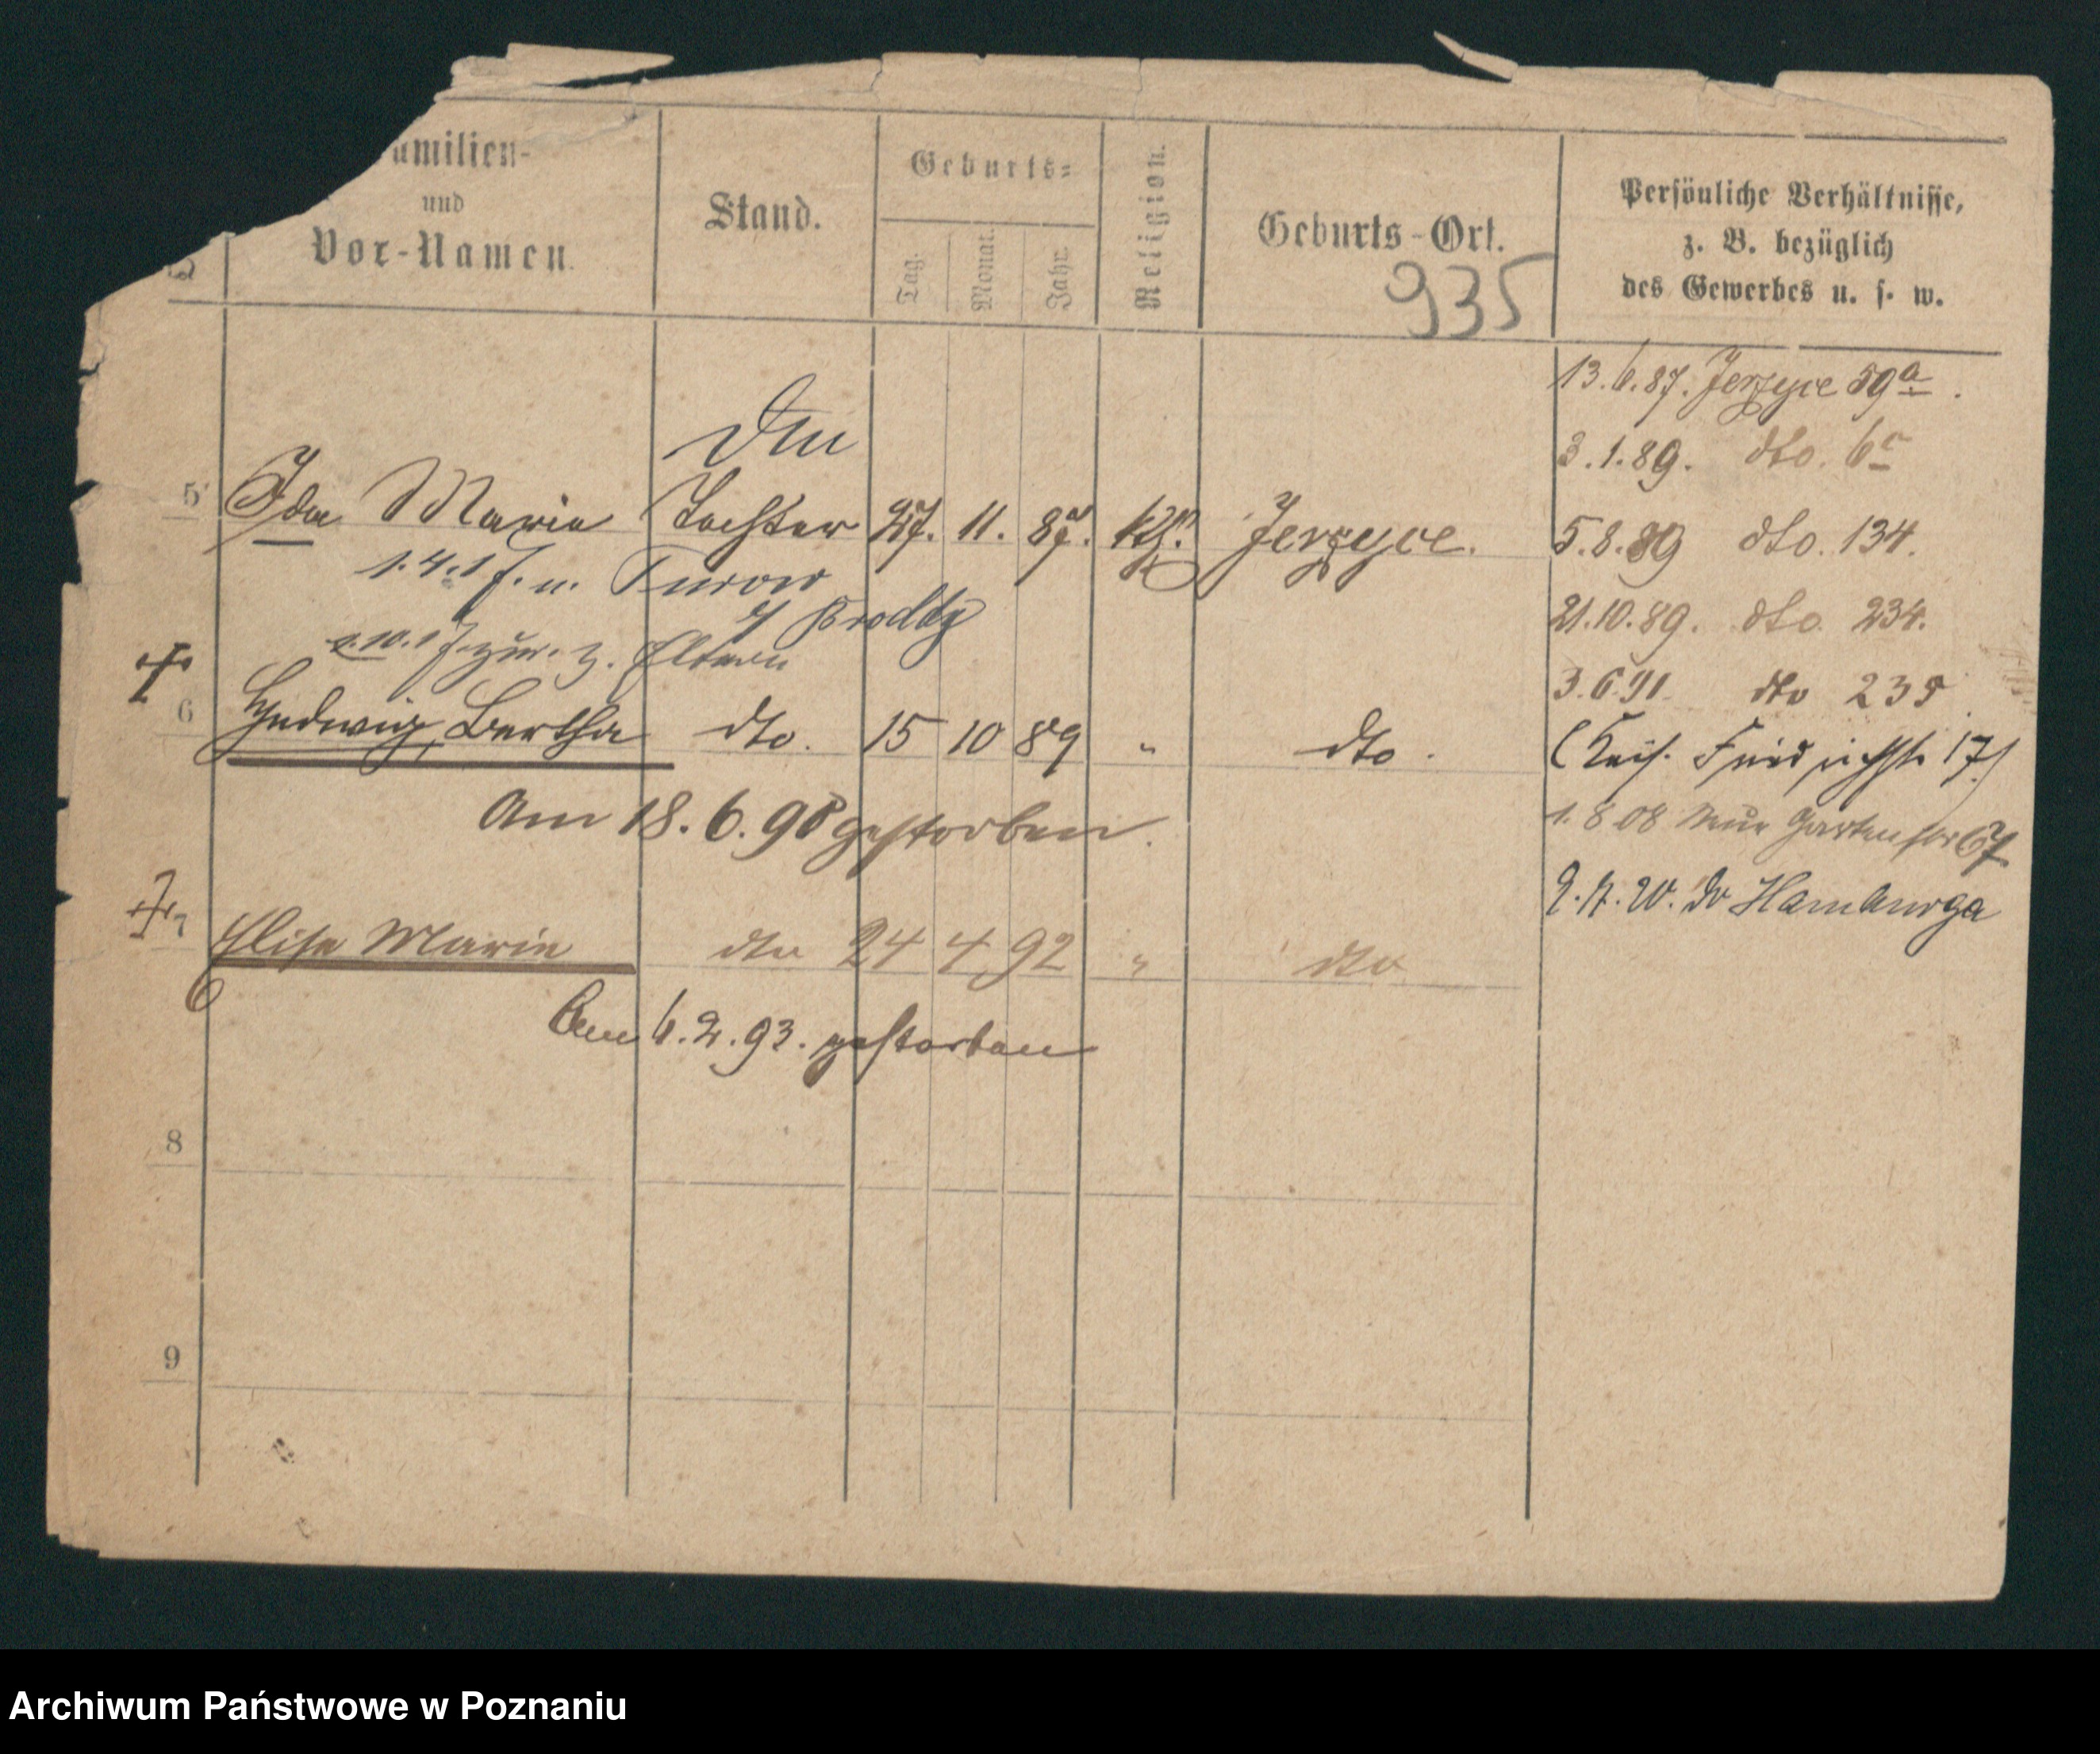 amilien-
und
Vor-Namen.
Stand.
Geburts-
Tag.
Monat.
Jahr.
Religion.
Geburts-Ort.
935
Persönliche Verhältnisse,
z. B. bezüglich
des Gewerbes u. s. w.
13.6.87. Jerzyce 59a.
3.1.89. dto. 6c
5 Ida Maria Tochter 27. 11. 87. kth. Jerzyce.
5.8.89 dto. 134.
1.4.17. n. Turow
21.10.89. dto. 234.
1.10.17 zur. z. Eltern
3.6.91. dto 235
6 Hedwig, Bertha dto. 15 10 89 " dto.
(Kais. Friedrichstr. 17)
Am 18.6.90 gestorben.
1.8.08 Neue Gartenstr 67
7 Elisa Maria dto 24 4 92 " dto
Hamburga
Am 6.2.93. gestorben
8
9
Archiwum Państwowe w Poznaniu